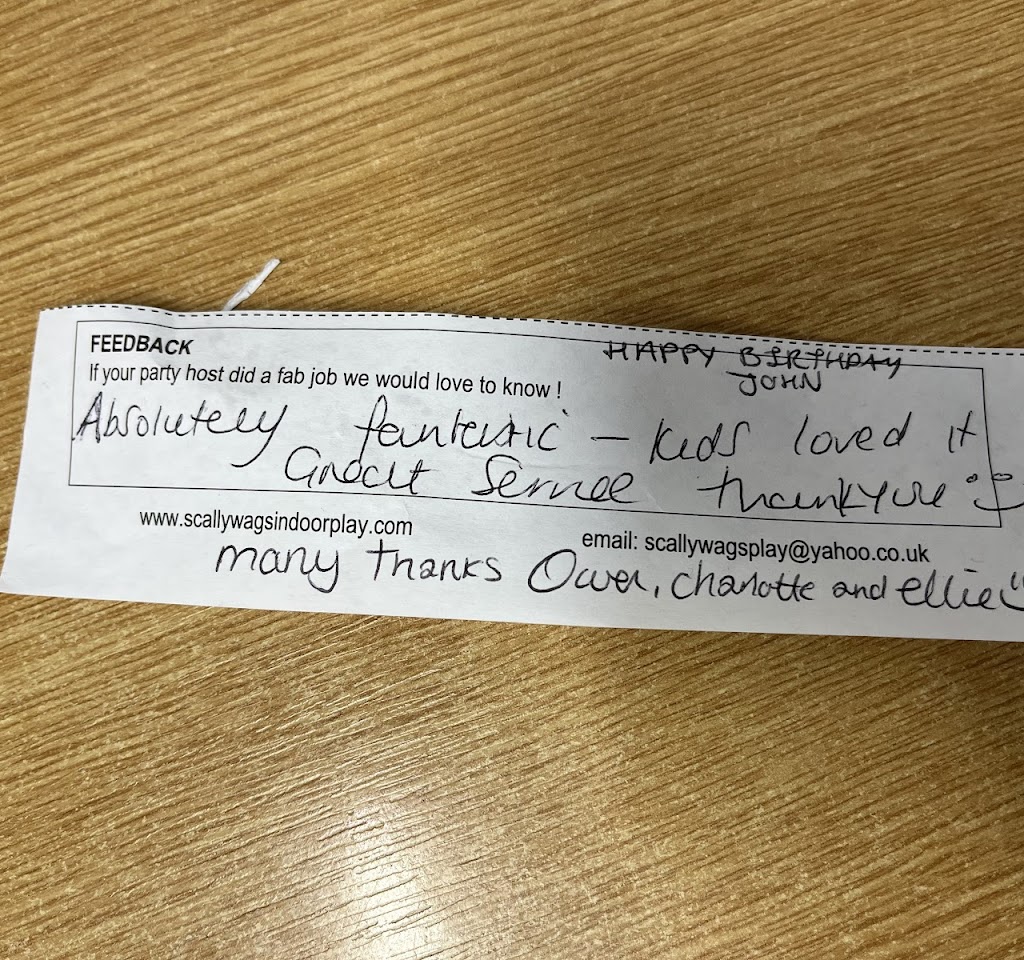 FEEDBACK
HAPPY BIRTHDAY
JOHN
If your party host did a fab job we would love to know !
Absolutely fantastic – kids loved it
Great Service thankyou
www.scallywagsindoorplay.com
email: scallywagsplay@yahoo.co.uk
many thanks Owen, charlotte and ellie